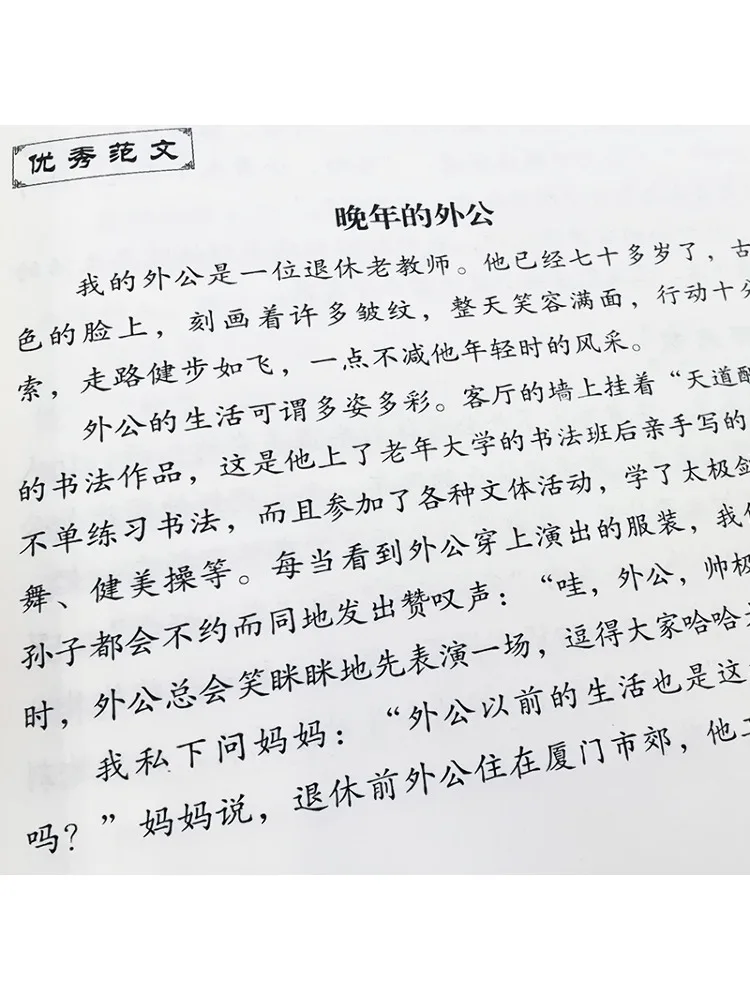 优秀范文
晚年的外公
我的外公是一位退休老教师。他已经七十多岁了，古
色的脸上，刻画着许多皱纹，整天笑容满面，行动十分
索，走路健步如飞，一点不减他年轻时的风采。
外公的生活可谓多姿多彩。客厅的墙上挂着“天道酬
的书法作品，这是他上了老年大学的书法班后亲手写的
不单练习书法，而且参加了各种文体活动，学了太极剑
舞、健美操等。每当看到外公穿上演出的服装，我们
孙子都会不约而同地发出赞叹声：“哇，外公，帅极
时，外公总会笑眯眯地先表演一场，逗得大家哈哈大
我私下问妈妈：“外公以前的生活也是这
吗？”妈妈说，退休前外公住在厦门市郊，他工